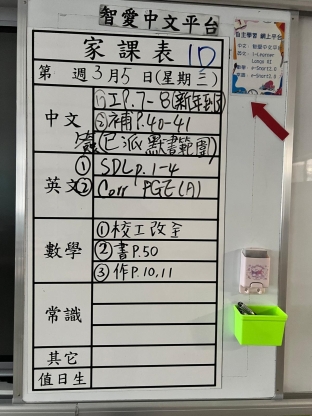 智愛中文平台
家課表 1D
第 週3月5日(星期三)
中文
①工P.7-8(新年到)
②補P.40-41
(已派默書範圍)
英文
①SDLp.1-4
②Corr PGE(A)
數學
①校工改全
②書P.50
③作P.10,11
常識
其它
值日生
自主學習 網上平台